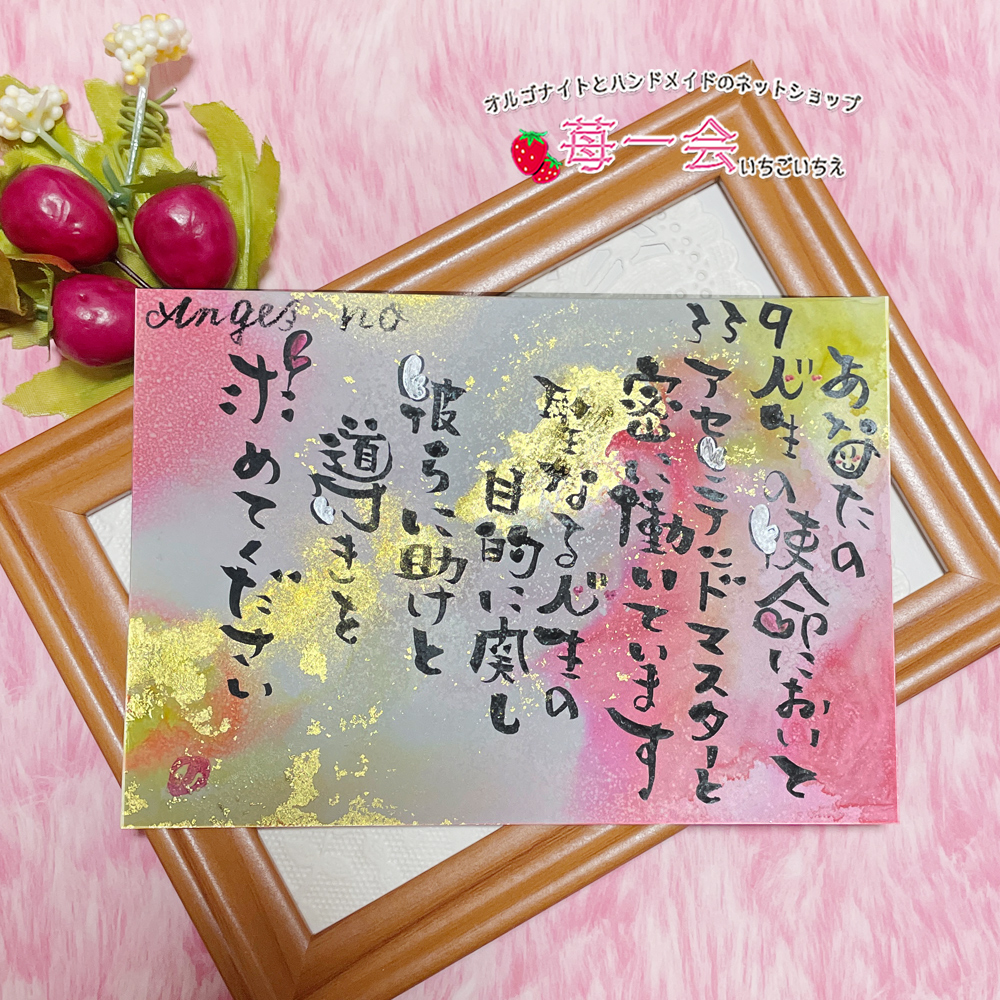 オルゴナイトとハンドメイドのネットショップ
苺一会
いちごいちえ
Anges no
339
あなたの
人生の使命において
アセンテッドマスターと
密に働いています
聖なる人生の
目的に関し
彼らに助けと
導きを
求めてください
の